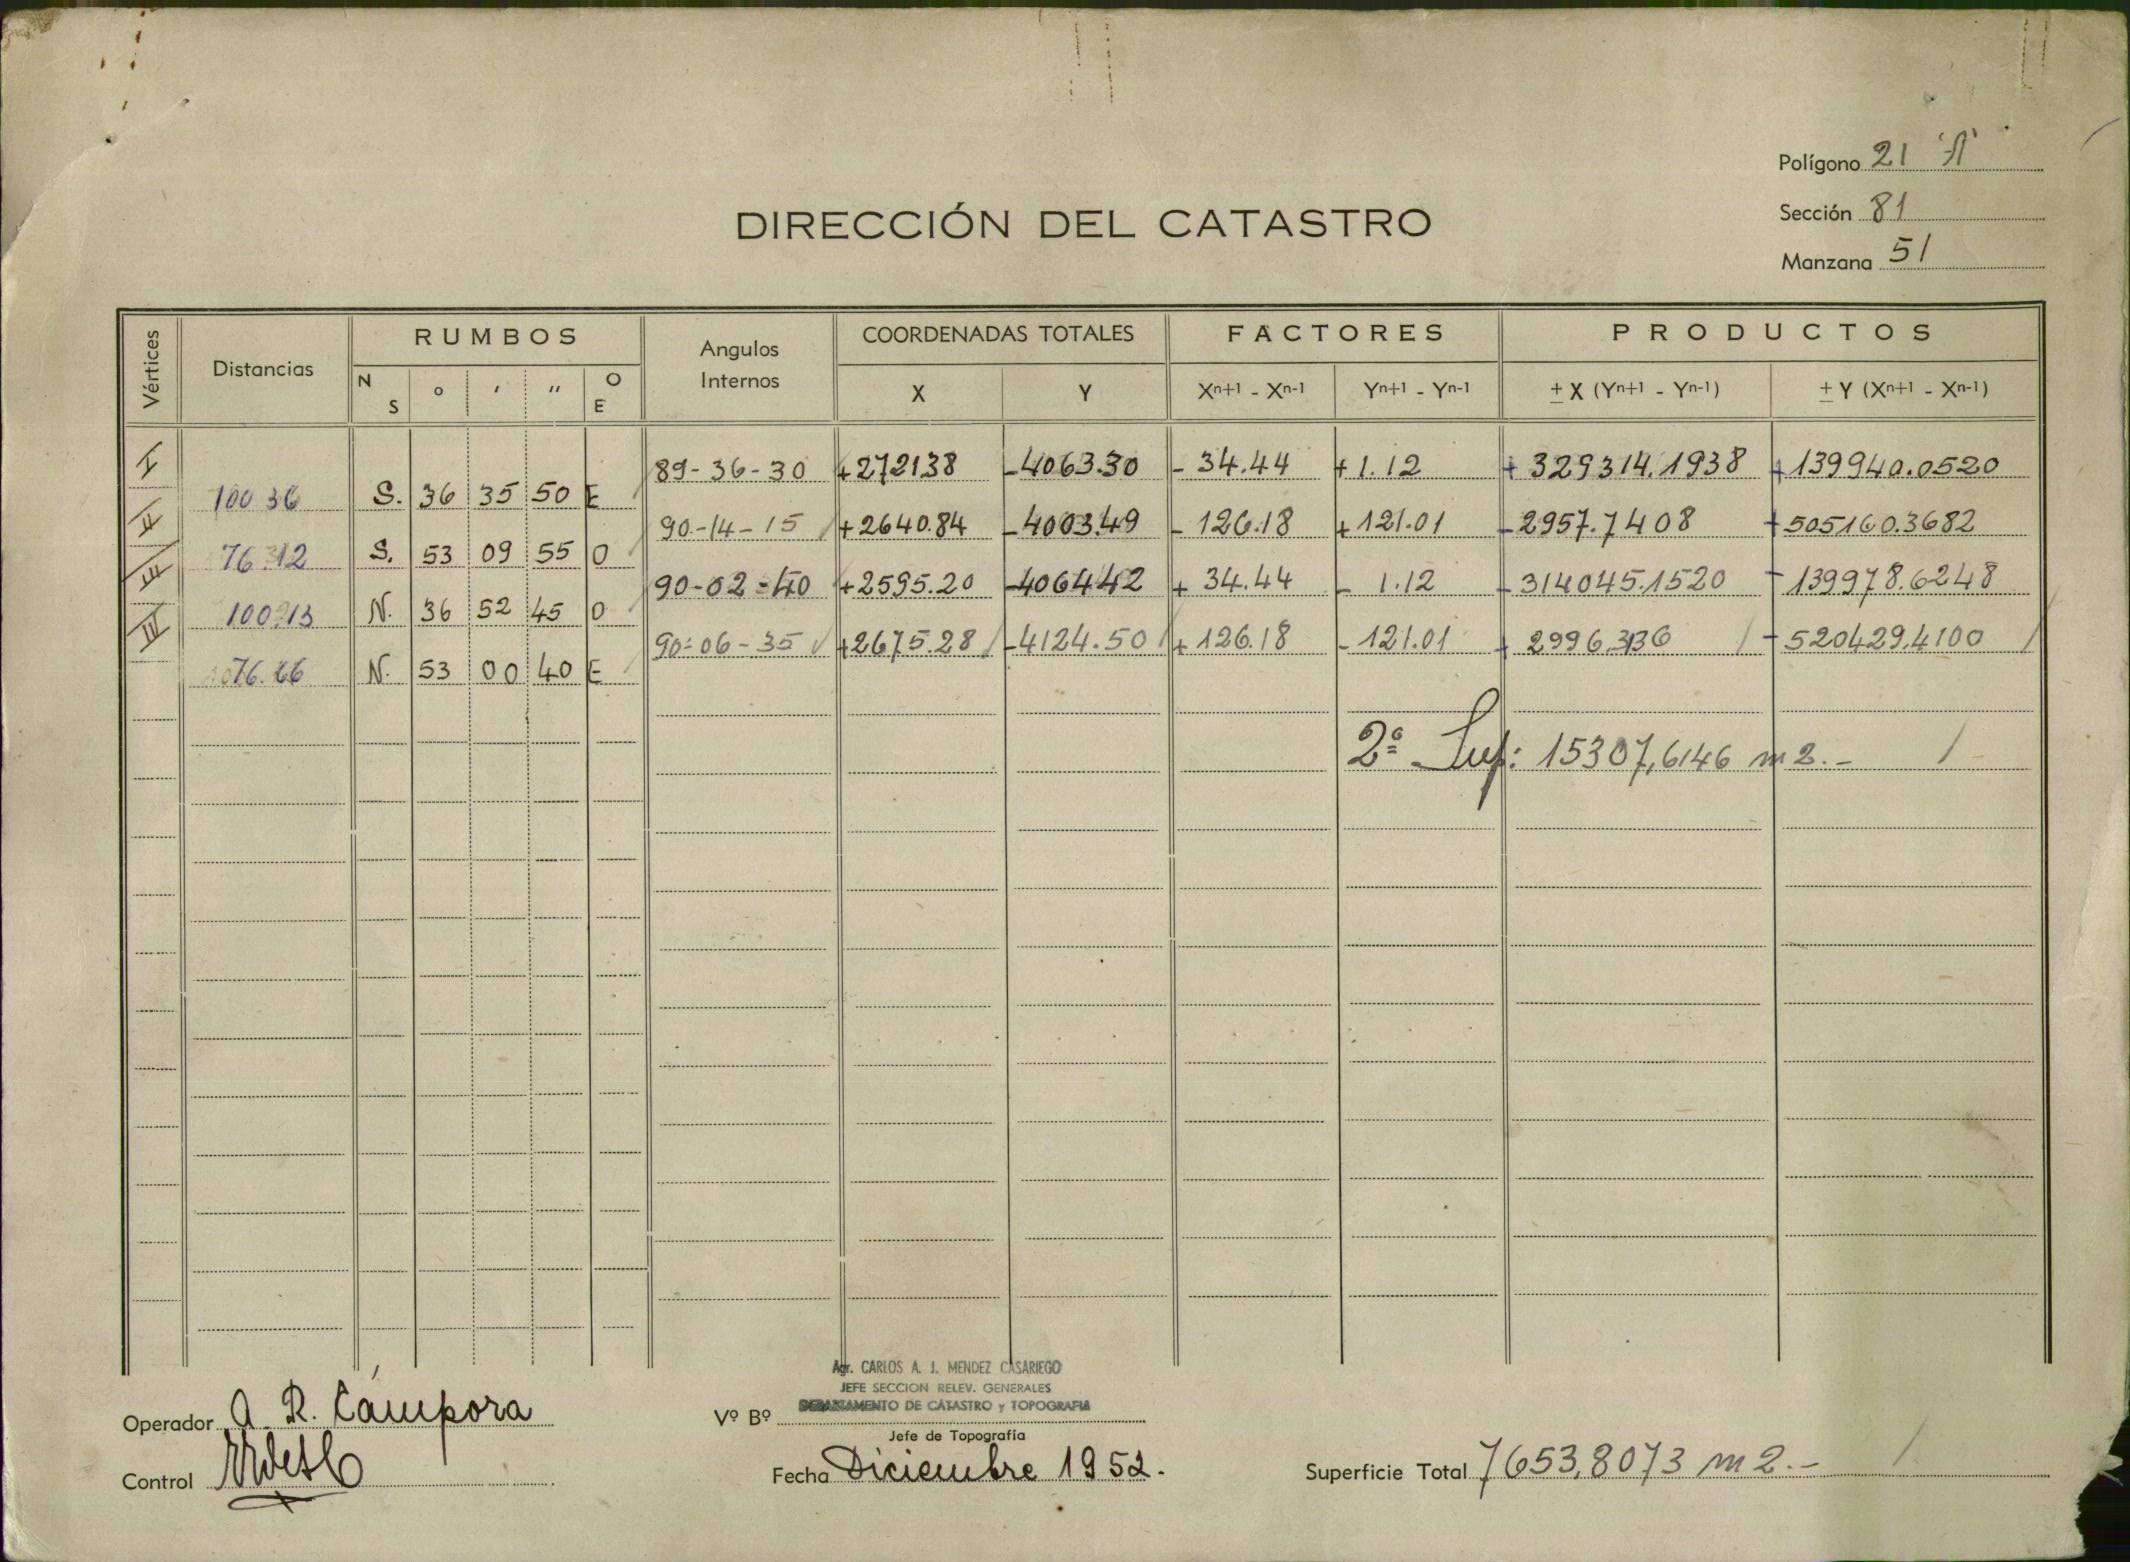 Polígono 21 "A"
Sección 81
Manzana 51
DIRECCIÓN DEL CATASTRO
Vértices Distancias RUMBOS Angulos Internos COORDENADAS TOTALES FACTORES PRODUCTOS
N S ° ′ ″ O E X Y Xⁿ⁺¹ - Xⁿ⁻¹ Yⁿ⁺¹ - Yⁿ⁻¹ ± X (Yⁿ⁺¹ - Yⁿ⁻¹) ± Y (Xⁿ⁺¹ - Xⁿ⁻¹)
I 89-36-30 +272138 -4063.30 - 34.44 +1.12 + 329314.1938 +139940.0520
100.36 S. 36 35 50 E
II 90-14-15 +2640.84 -4003.49 - 126.18 +121.01 -2957.7408 +505160.3682
76.12 S. 53 09 55 O
III 90-02-40 +2595.20 -406442 + 34.44 - 1.12 -314045.1520 -139978.6248
100.13 N. 36 52 45 O
IV 90-06-35 +2675.28 -4124.50 + 126.18 -121.01 + 2996,3136 -520429,4100
76.66 N. 53 00 40 E
2ª Sup: 15307,6146 m2.-
Agr. CARLOS A. J. MENDEZ CASARIEGO
JEFE SECCION RELEV. GENERALES
DEPARTAMENTO DE CATASTRO y TOPOGRAFIA
Operador A. R. Cámpora
Vº Bº
Jefe de Topografía
Control
Fecha Diciembre 1952.
Superficie Total 7653,8073 m2.-